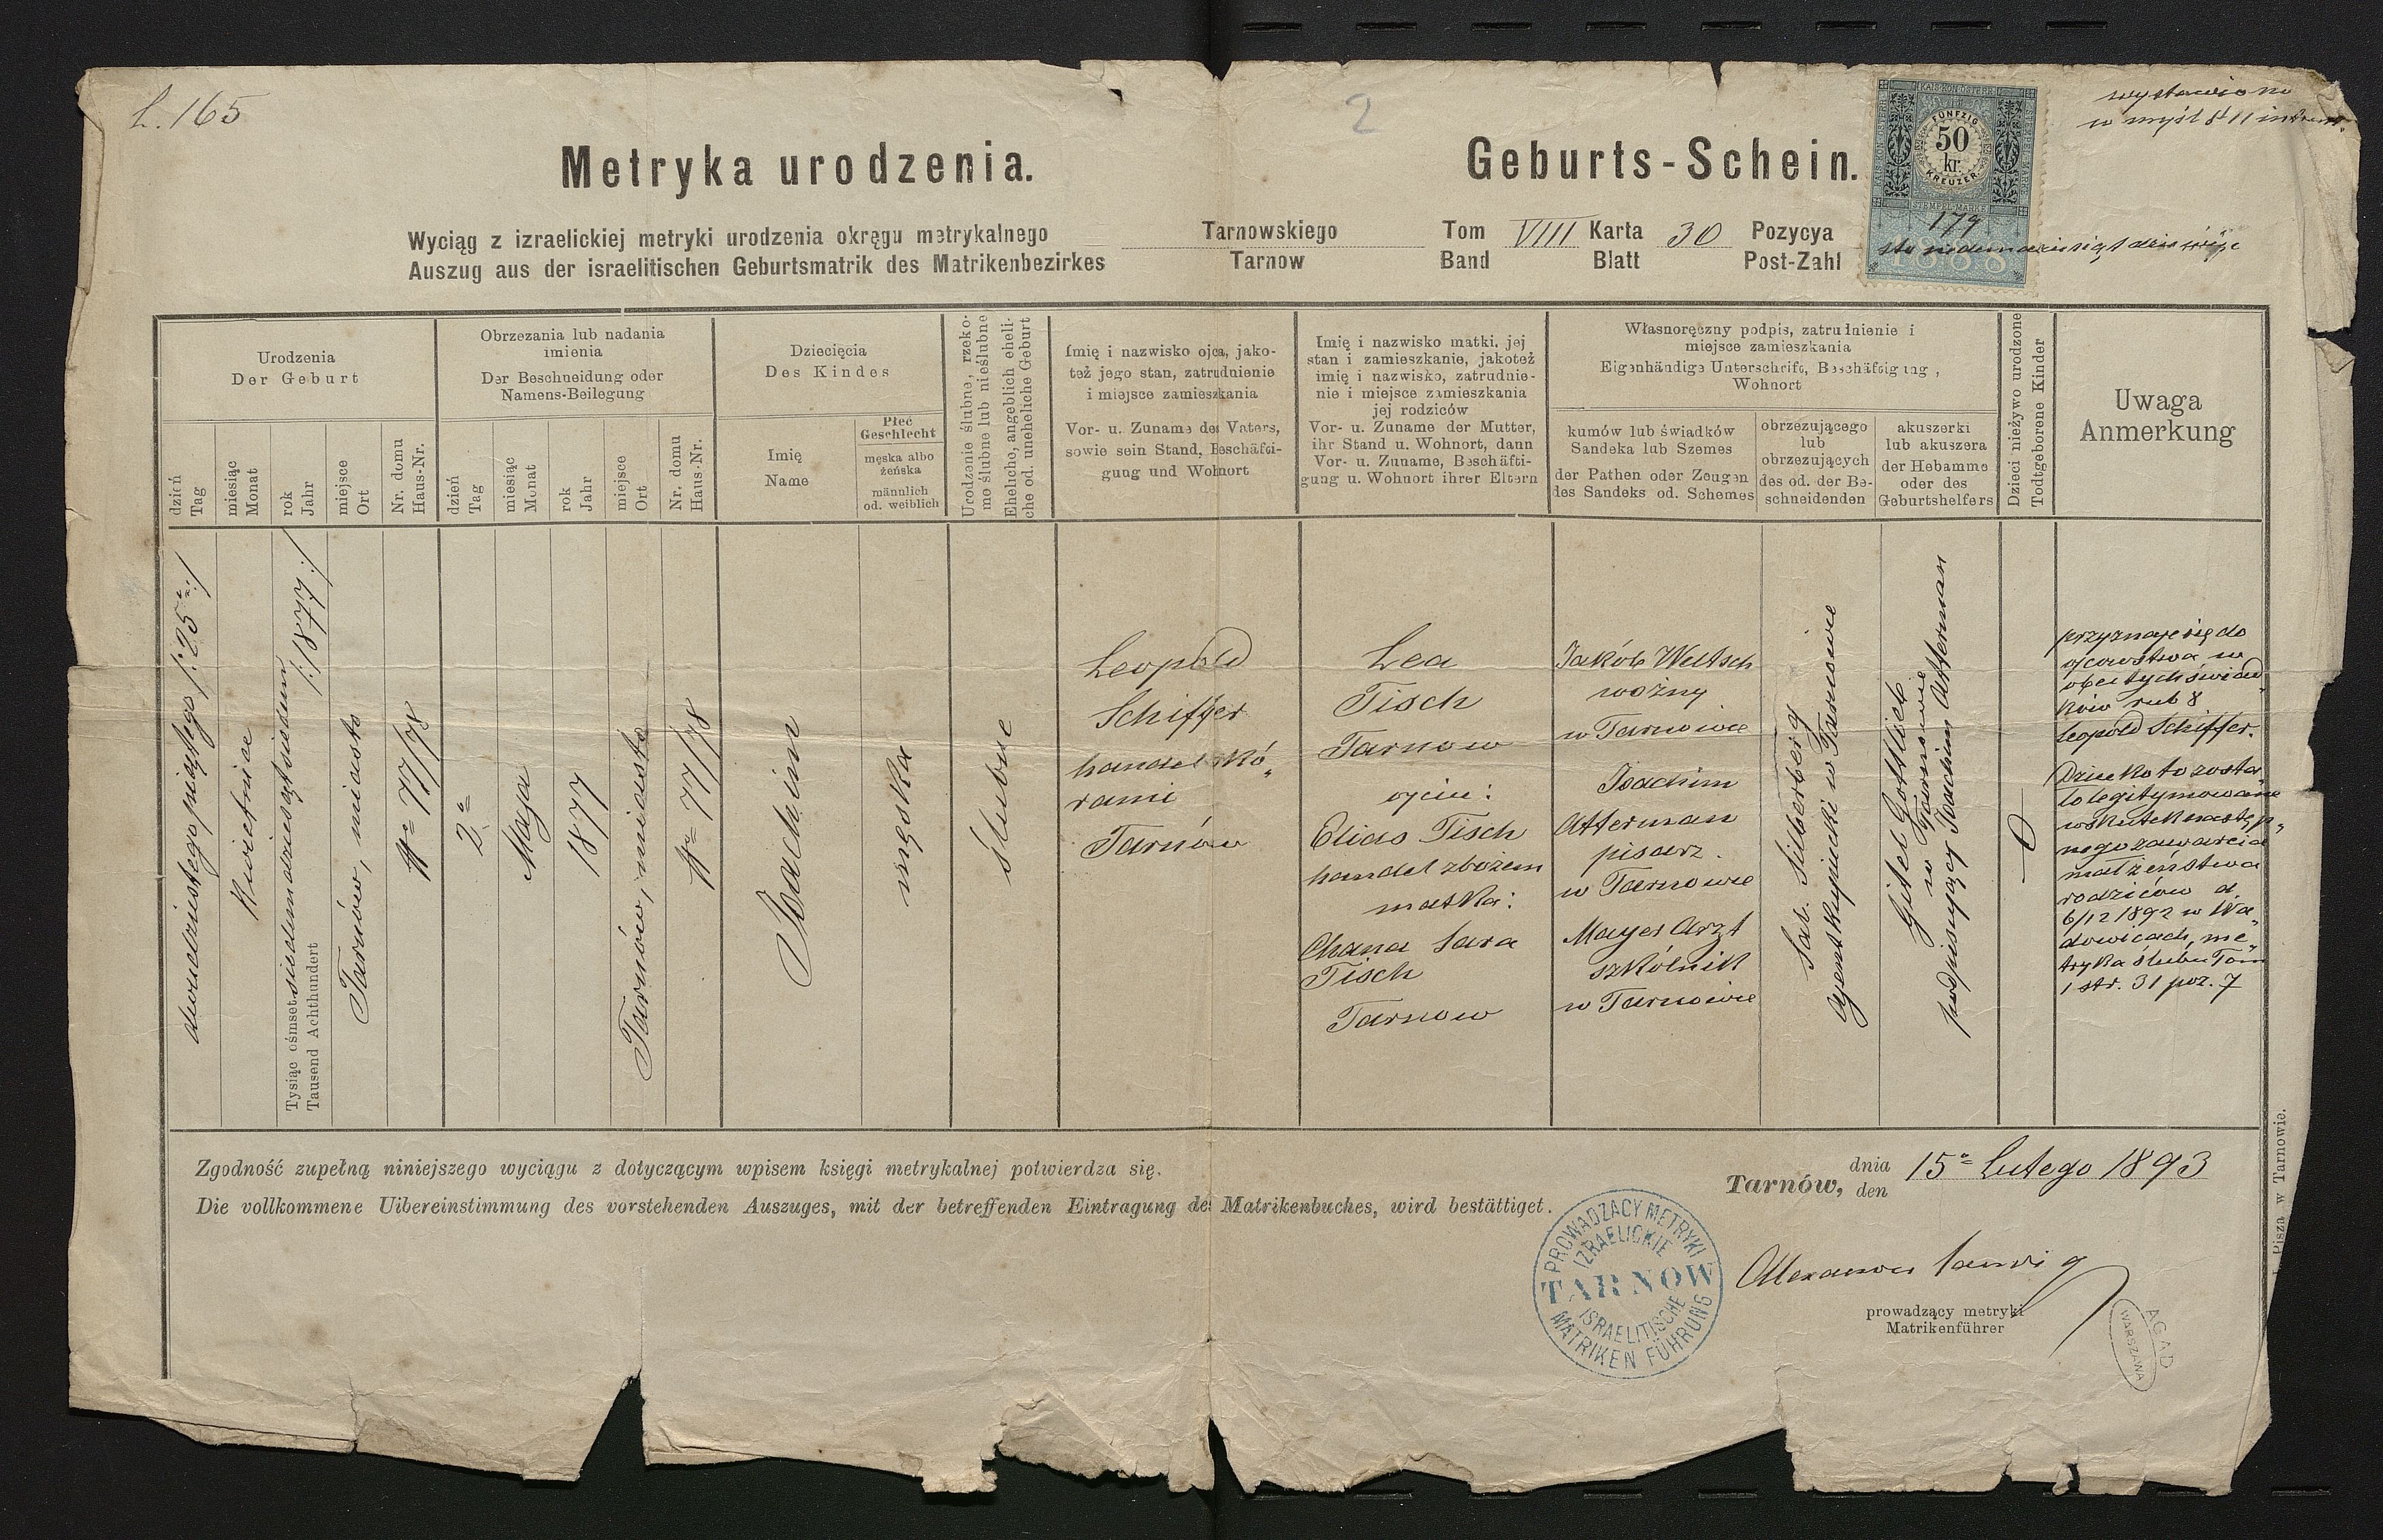 L. 165
2
wystawiono
w myśl § 11 instruk.
Metryka urodzenia.
Geburts-Schein.
KAIS. KÖN. ÖSTERR.
FÜNFZIG
50
kr.
KREUZER
STEMPEL-MARKE
1888
179
sto siedemdziesiąt dziewięć
Wyciąg z izraelickiej metryki urodzenia okręgu metrykalnego Tarnowskiego Tom VIII Karta 30 Pozycya
Auszug aus der israelitischen Geburtsmatrik des Matrikenbezirkes Tarnow Band Blatt Post-Zahl
Urodzenia
Der Geburt
dzień
Tag
miesiąc
Monat
rok
Jahr
miejsce
Ort
Nr. domu
Haus-Nr.
Obrzezania lub nadania
imienia
Der Beschneidung oder
Namens-Beilegung
dzień
Tag
miesiąc
Monat
rok
Jahr
miejsce
Ort
Nr. domu
Haus-Nr.
Dziecięcia
Des Kindes
Imię
Name
Płeć
Geschlecht
męska albo
żeńska
männlich
od. weiblich
Urodzenie ślubne, rzeko-
mo ślubne lub nieślubne
Eheliche, angeblich eheli-
che od. uneheliche Geburt
Imię i nazwisko ojca, jako-
też jego stan, zatrudnienie
i miejsce zamieszkania
Vor- u. Zuname des Vaters,
sowie sein Stand, Beschäfti-
gung und Wohnort
Imię i nazwisko matki, jej
stan i zamieszkanie, jakoteż
imię i nazwisko, zatrudnie-
nie i miejsce zamieszkania
jej rodziców
Vor- u. Zuname der Mutter,
ihr Stand u. Wohnort, dann
Vor- u. Zuname, Beschäfti-
gung u. Wohnort ihrer Eltern
Własnoręczny podpis, zatrudnienie i
miejsce zamieszkania
Eigenhändige Unterschrift, Beschäftigung,
Wohnort
kumów lub świadków
Sandeka lub Szemes
der Pathen oder Zeugen
des Sandeks od. Schemes
obrzezującego
lub
obrzezujących
des od. der Be-
schneidenden
akuszerki
lub akuszera
der Hebamme
oder des
Geburtshelfers
Dzieci nieżywo urodzone
Todtgeborene Kinder
Uwaga
Anmerkung
dwudziestego piątego /:25º:/
Kwietnia
Tysiąc ośmset siedmdziesiąt siedem /:1877:/
Tausend Achthundert
Tarnów, miasto
Nº 77/78
2º
Maja
1877
Tarnów, miasto
Nº 77/78
Joachim
męska
ślubne
Leopold
Schiffer
handel skó„
rami
Tarnów
Lea
Tisch
Tarnow
ojciec:
Elias Tisch
handel zbożem
matka:
Chana Sara
Tisch
Tarnow
Jakób Weltsch
woźny
w Tarnowie
Joachim
Atterman
pisarz.
w Tarnowie
Mayer Arzt
szkólnik
w Tarnowie
Sal. Silberberg
Agent kupiecki w Tarnowie
Gitel Gottlieb
w Tarnowie
podpisujący Joachim Atterman
0
przyznaje się do
ojcowstwa w
obec tych świad„
ków rub 8
Leopold Schiffer.
Dziecko to zosta„
ło legitymowane
wskutek następ„
nego zawarcia
małżeństwa
rodziców d.
6/12 1892 w Wa„
dowicach, me„
tryka ślubu Tom
1 str. 31 poz. 7
Zgodność zupełną niniejszego wyciągu z dotyczącym wpisem księgi metrykalnej potwierdza się.
Die vollkommene Uibereinstimmung des vorstehenden Auszuges, mit der betreffenden Eintragung des Matrikenbuches, wird bestättiget.
Tarnów, dnia
den
15º Lutego 1893
PROWADZĄCY METRYKI
IZRAELICKIE
TARNÓW
ISRAELITISCHE
MATRIKEN FÜHRUNG
prowadzący metryki
Matrikenführer
AGAD
WARSZAWA
Pisza w Tarnowie.